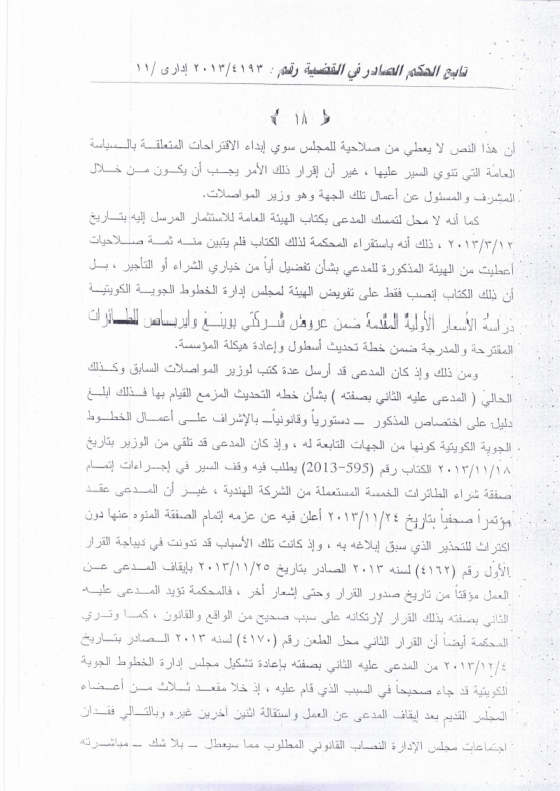 تابع الحكم الصادر في القضية رقم : ٢٠١٣/٤١٩٣ إدارى /١١
﴿ ١٨ ﴾
أن هذا النص لا يعطي من صلاحية للمجلس سوي إبداء الاقتراحات المتعلقة بالسياسة
العامة التي تنوي السير عليها ، غير أن إقرار ذلك الأمر يجب أن يكون من خلال
المشرف والمسئول عن أعمال تلك الجهة وهو وزير المواصلات.
كما أنه لا محل لتمسك المدعى بكتاب الهيئة العامة للاستثمار المرسل إليه بتاريخ
٢٠١٣/٣/١٢ ، ذلك أنه باستقراء المحكمة لذلك الكتاب فلم يتبين منه ثمة صلاحيات
أعطيت من الهيئة المذكورة للمدعي بشأن تفضيل أياً من خياري الشراء أو التأجير ، بل
أن ذلك الكتاب إنصب فقط على تفويض الهيئة لمجلس إدارة الخطوط الجوية الكويتية
دراسة الأسعار الأولية المقدمة ضمن عروض شركتي بوينغ وايرباص للطائرات
المقترحة والمدرجة ضمن خطة تحديث أسطول وإعادة هيكلة المؤسسة.
ومن ذلك وإذ كان المدعى قد أرسل عدة كتب لوزير المواصلات السابق وكذلك
الحالي ( المدعى عليه الثاني بصفته ) بشأن خطه التحديث المزمع القيام بها فذلك ابلغ
دليل على اختصاص المذكور ـ دستورياً وقانونياً ـ بالإشراف على أعمال الخطوط
الجوية الكويتية كونها من الجهات التابعة له ، وإذ كان المدعى قد تلقي من الوزير بتاريخ
٢٠١٣/١١/١٨ الكتاب رقم (595-2013) يطلب فيه وقف السير في إجراءات إتمام
صفقة شراء الطائرات الخمسة المستعملة من الشركة الهندية ، غير أن المدعى عقد
مؤتمراً صحفياً بتاريخ ٢٠١٣/١١/٢٤ أعلن فيه عن عزمه إتمام الصفقة المنوه عنها دون
اكتراث للتحذير الذي سبق إبلاغه به ، وإذ كانت تلك الأسباب قد تدونت في ديباجة القرار
الأول رقم (٤١٦٢) لسنه ٢٠١٣ الصادر بتاريخ ٢٠١٣/١١/٢٥ بإيقاف المدعى عن
العمل مؤقتاً من تاريخ صدور القرار وحتى إشعار أخر ، فالمحكمة تؤيد المدعى عليه
الثاني بصفته بذلك القرار لإرتكانه على سبب صحيح من الواقع والقانون ، كما وتري
المحكمة أيضاً أن القرار الثاني محل الطعن رقم (٤١٧٠) لسنه ٢٠١٣ الصادر بتاريخ
٢٠١٣/١٢/٤ من المدعى عليه الثاني بصفته بإعادة تشكيل مجلس إدارة الخطوط الجوية
الكويتية قد جاء صحيحاً في السبب الذي قام عليه ، إذ خلا مقعد ثلاث من أعضاء
المجلس القديم بعد إيقاف المدعى عن العمل واستقالة اثنين أخرين غيره وبالتالي فقدان
اجتماعات مجلس الإدارة النصاب القانوني المطلوب مما سيعطل ـ بلا شك ـ مباشرته